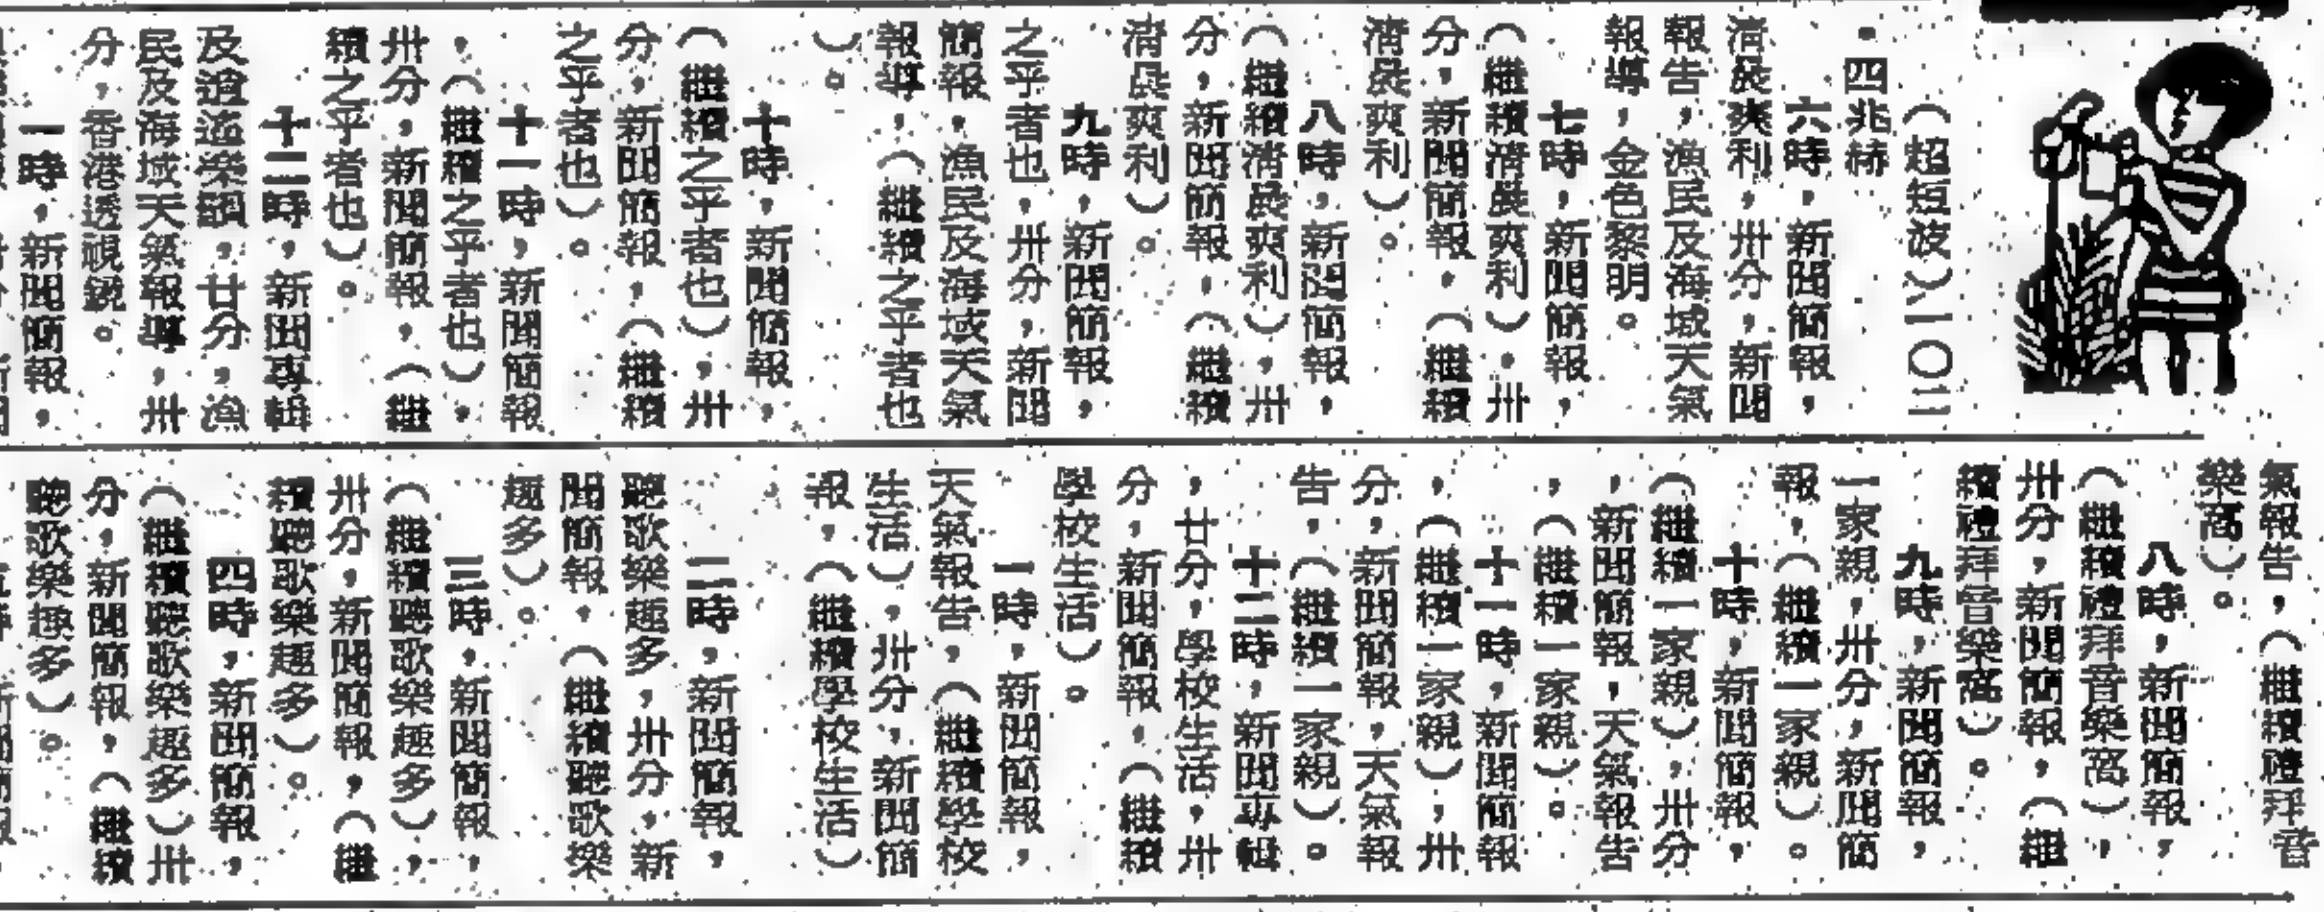 （超短波）一〇一
・四兆赫
六時，新聞簡報，
清晨爽利，卅分，新聞
報告，漁民及海域天氣
報導，金色黎明。
七時，新聞簡報，
（繼續清晨爽利），卅
分，新聞簡報，（繼續
清晨爽利）。
八時，新聞簡報，
（繼續清晨爽利），卅
分，新聞簡報，（繼續
清晨爽利）。
九時，新聞簡報，
之乎者也，卅分，新聞
簡報，漁民及海域天氣
報導，（繼續之乎者也
）。
十時，新聞簡報，
（繼續之乎者也），卅
分，新聞簡報，（繼續
之乎者也）。
十一時，新聞簡報
，（繼續之乎者也），
卅分，新聞簡報，（繼
續之乎者也）。
十二時，新聞專輯
及逍遙樂韻，廿分，漁
民及海域天氣報導，卅
分，香港透視鏡。
一時，新聞簡報，
氣報告，（繼續禮拜音
樂窩）。
八時，新聞簡報，
（繼續禮拜音樂窩），
卅分，新聞簡報，（繼
續禮拜音樂窩）。
九時，新聞簡報，
一家親，卅分，新聞簡
報，（繼續一家親）。
十時，新聞簡報，
（繼續一家親），卅分
，新聞簡報，天氣報告
，（繼續一家親）。
十一時，新聞簡報
，（繼續一家親），卅
分，新聞簡報，天氣報
告，（繼續一家親）。
十二時，新聞專輯
，廿分，學校生活，卅
分，新聞簡報，（繼續
學校生活）。
一時，新聞簡報，
天氣報告，（繼續學校
生活），卅分，新聞簡
報，（繼續學校生活）
二時，新聞簡報，
聽歌樂趣多，卅分，新
聞簡報，（繼續聽歌樂
趣多）。
三時，新聞簡報，
（繼續聽歌樂趣多），
卅分，新聞簡報，（繼
續聽歌樂趣多）。
四時，新聞簡報，
（繼續聽歌樂趣多）卅
分，新聞簡報，（繼續
聽歌樂趣多）。